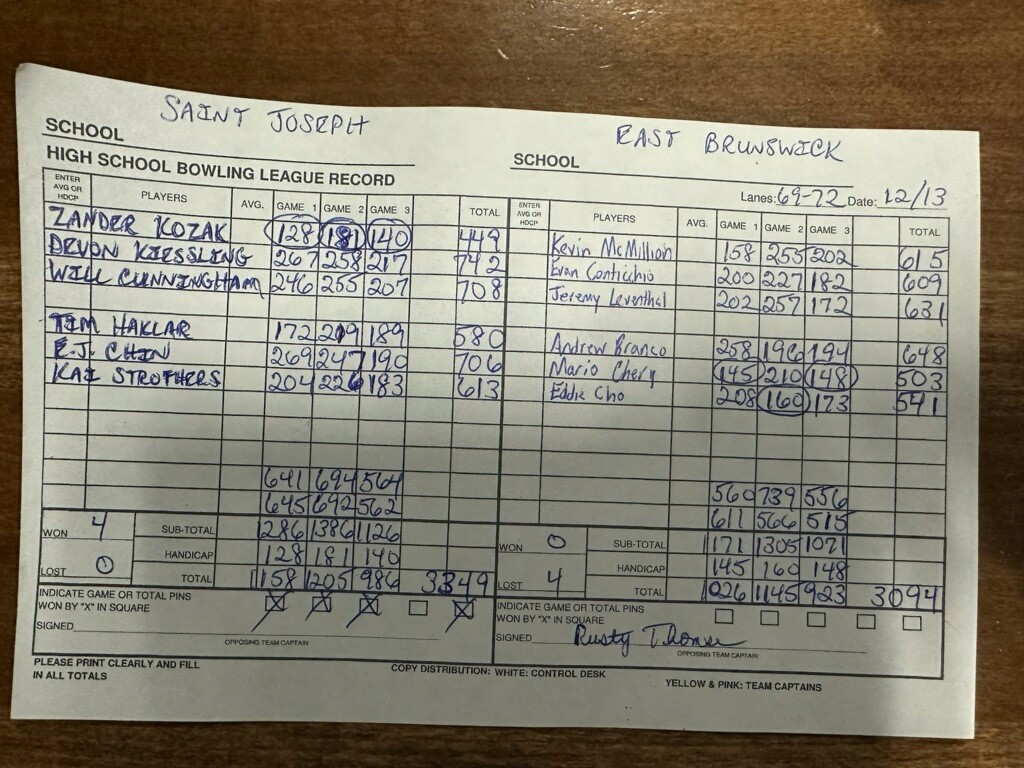 SAINT JOSEPH
SCHOOL
EAST BRUNSWICK
SCHOOL
HIGH SCHOOL BOWLING LEAGUE RECORD
Lanes: 69-72 Date: 12/13
ENTER AVG OR HDCP PLAYERS AVG. GAME 1 GAME 2 GAME 3 TOTAL
ZANDER KOZAK 128 181 140 449
DEVON KIESSLING 267 258 217 742
WILL CUNNINGHAM 246 255 207 708
TIM HAKLAR 172 219 189 580
E.J. CHIN 269 247 190 706
KAI STROTHERS 204 226 183 613
641 694 564
645 692 562
WON 4 SUB-TOTAL 1286 1386 1126
HANDICAP 128 181 140
LOST 0 TOTAL 1158 1205 986 3349
INDICATE GAME OR TOTAL PINS
WON BY "X" IN SQUARE X X X X
SIGNED
OPPOSING TEAM CAPTAIN
ENTER AVG OR HDCP PLAYERS AVG. GAME 1 GAME 2 GAME 3 TOTAL
Kevin McMillion 158 255 202 615
Evan Conticchio 200 227 182 609
Jeremy Leventhal 202 257 172 631
Andrew Branco 258 196 194 648
Mario Chery 145 210 148 503
Eddie Cho 208 160 173 541
560 739 556
611 566 515
WON 0 SUB-TOTAL 1171 1305 1071
HANDICAP 145 160 148
LOST 4 TOTAL 1026 1145 923 3094
INDICATE GAME OR TOTAL PINS
WON BY "X" IN SQUARE
SIGNED Rusty Thomsen
OPPOSING TEAM CAPTAIN
PLEASE PRINT CLEARLY AND FILL
IN ALL TOTALS
COPY DISTRIBUTION: WHITE: CONTROL DESK
YELLOW & PINK: TEAM CAPTAINS